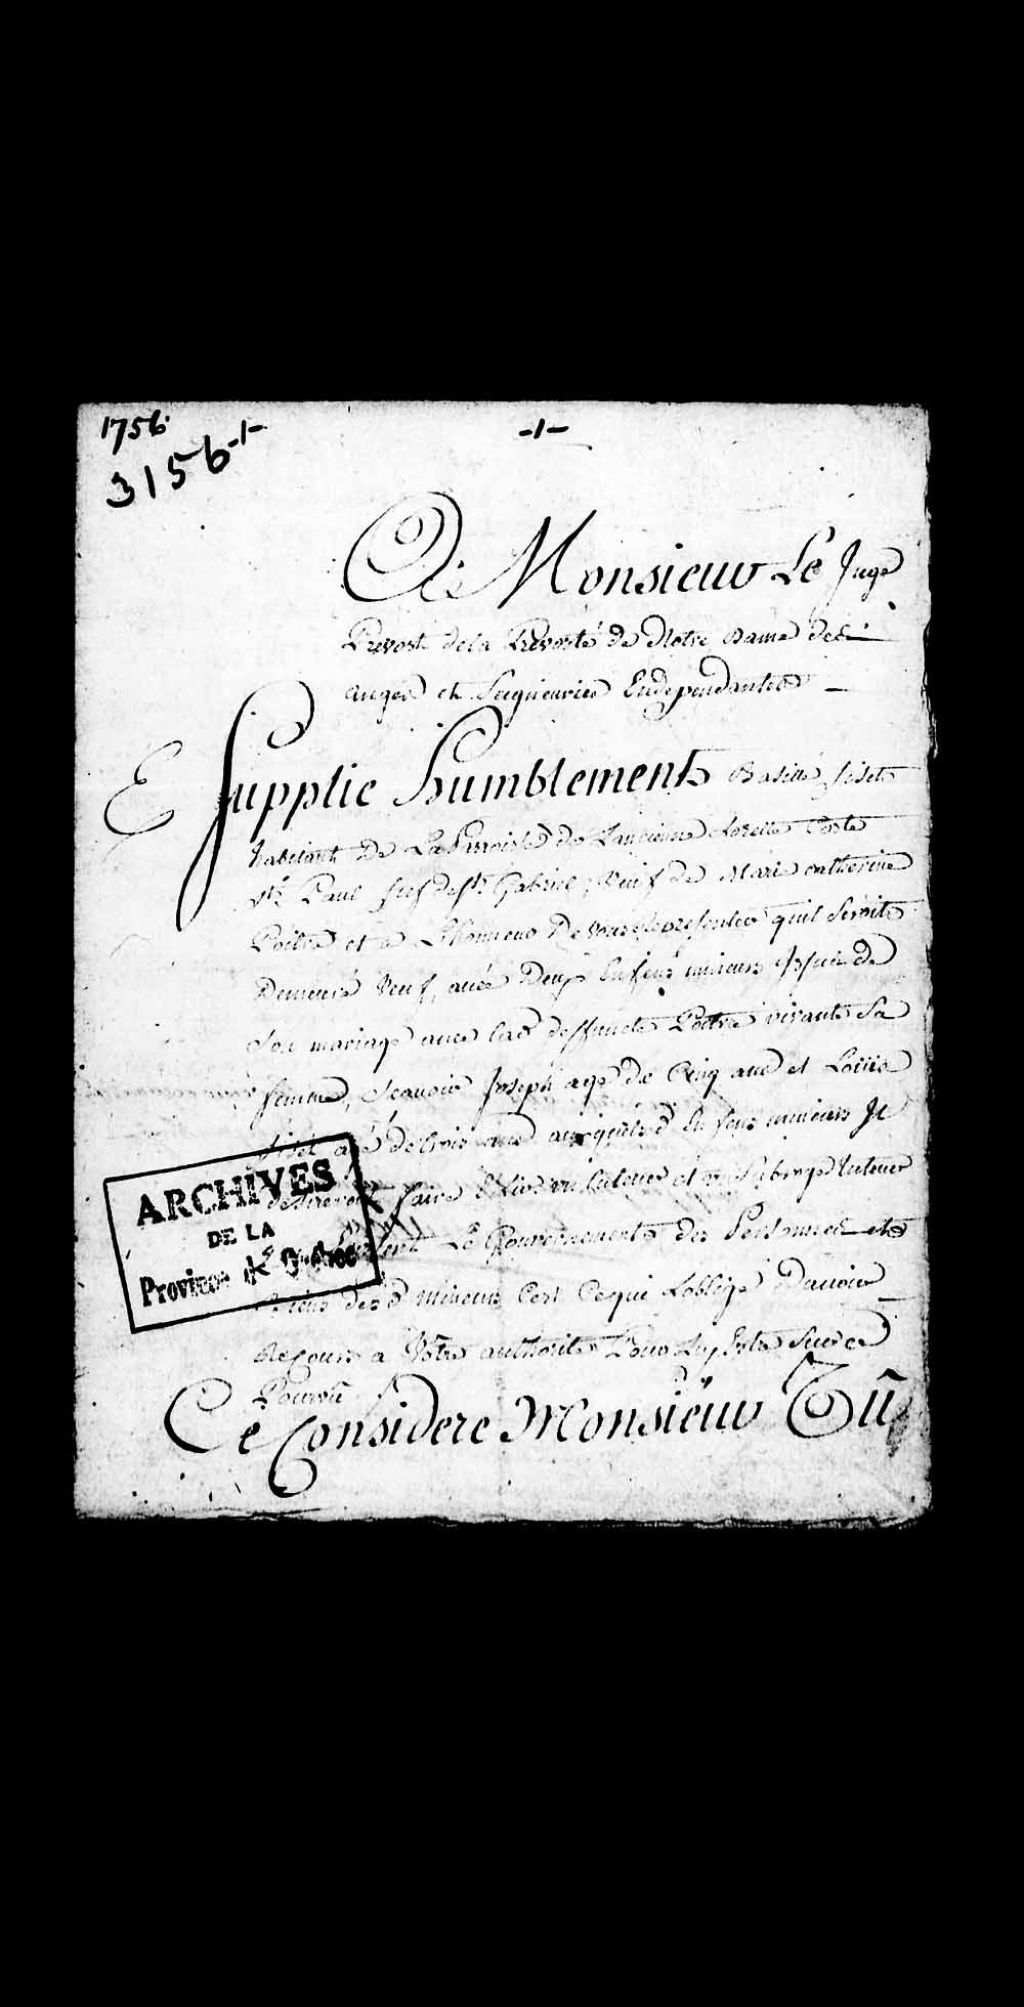 1756
3156-1-
-1-
A Monsieur Le Juge
Prevost de la Prevosté de Notre Dame des
anges et Seigneuries Endependantes
Supplie humblement Basille
habitant de La Parroisse de Lancienne Lorette Coste
St. Paul fief de St. Gabriel, Veuf de Marie catherine
Poitra et a Lhonneur De vous representer quil seroit
Demeuré Veuf, avec Deux Enfens mineurs Issus de
son mariage avec deffuncte Poitra vivante Sa
femme, Scavoir Joseph agé de Cinq ans et Loüis
agé de trois ans auxquels Enfens mineurs Il
desireroit faire Elire un tuteur et un Subrogé tuteur
Le Gouvernement des Personnes et
des mineurs Cest Cequi Loblige Davoir
Recours a Votre authorité Pour Luy Estre Surce
Pourvû
Ce Consideré Monsieur
ARCHIVES
DE LA
Province de Québec